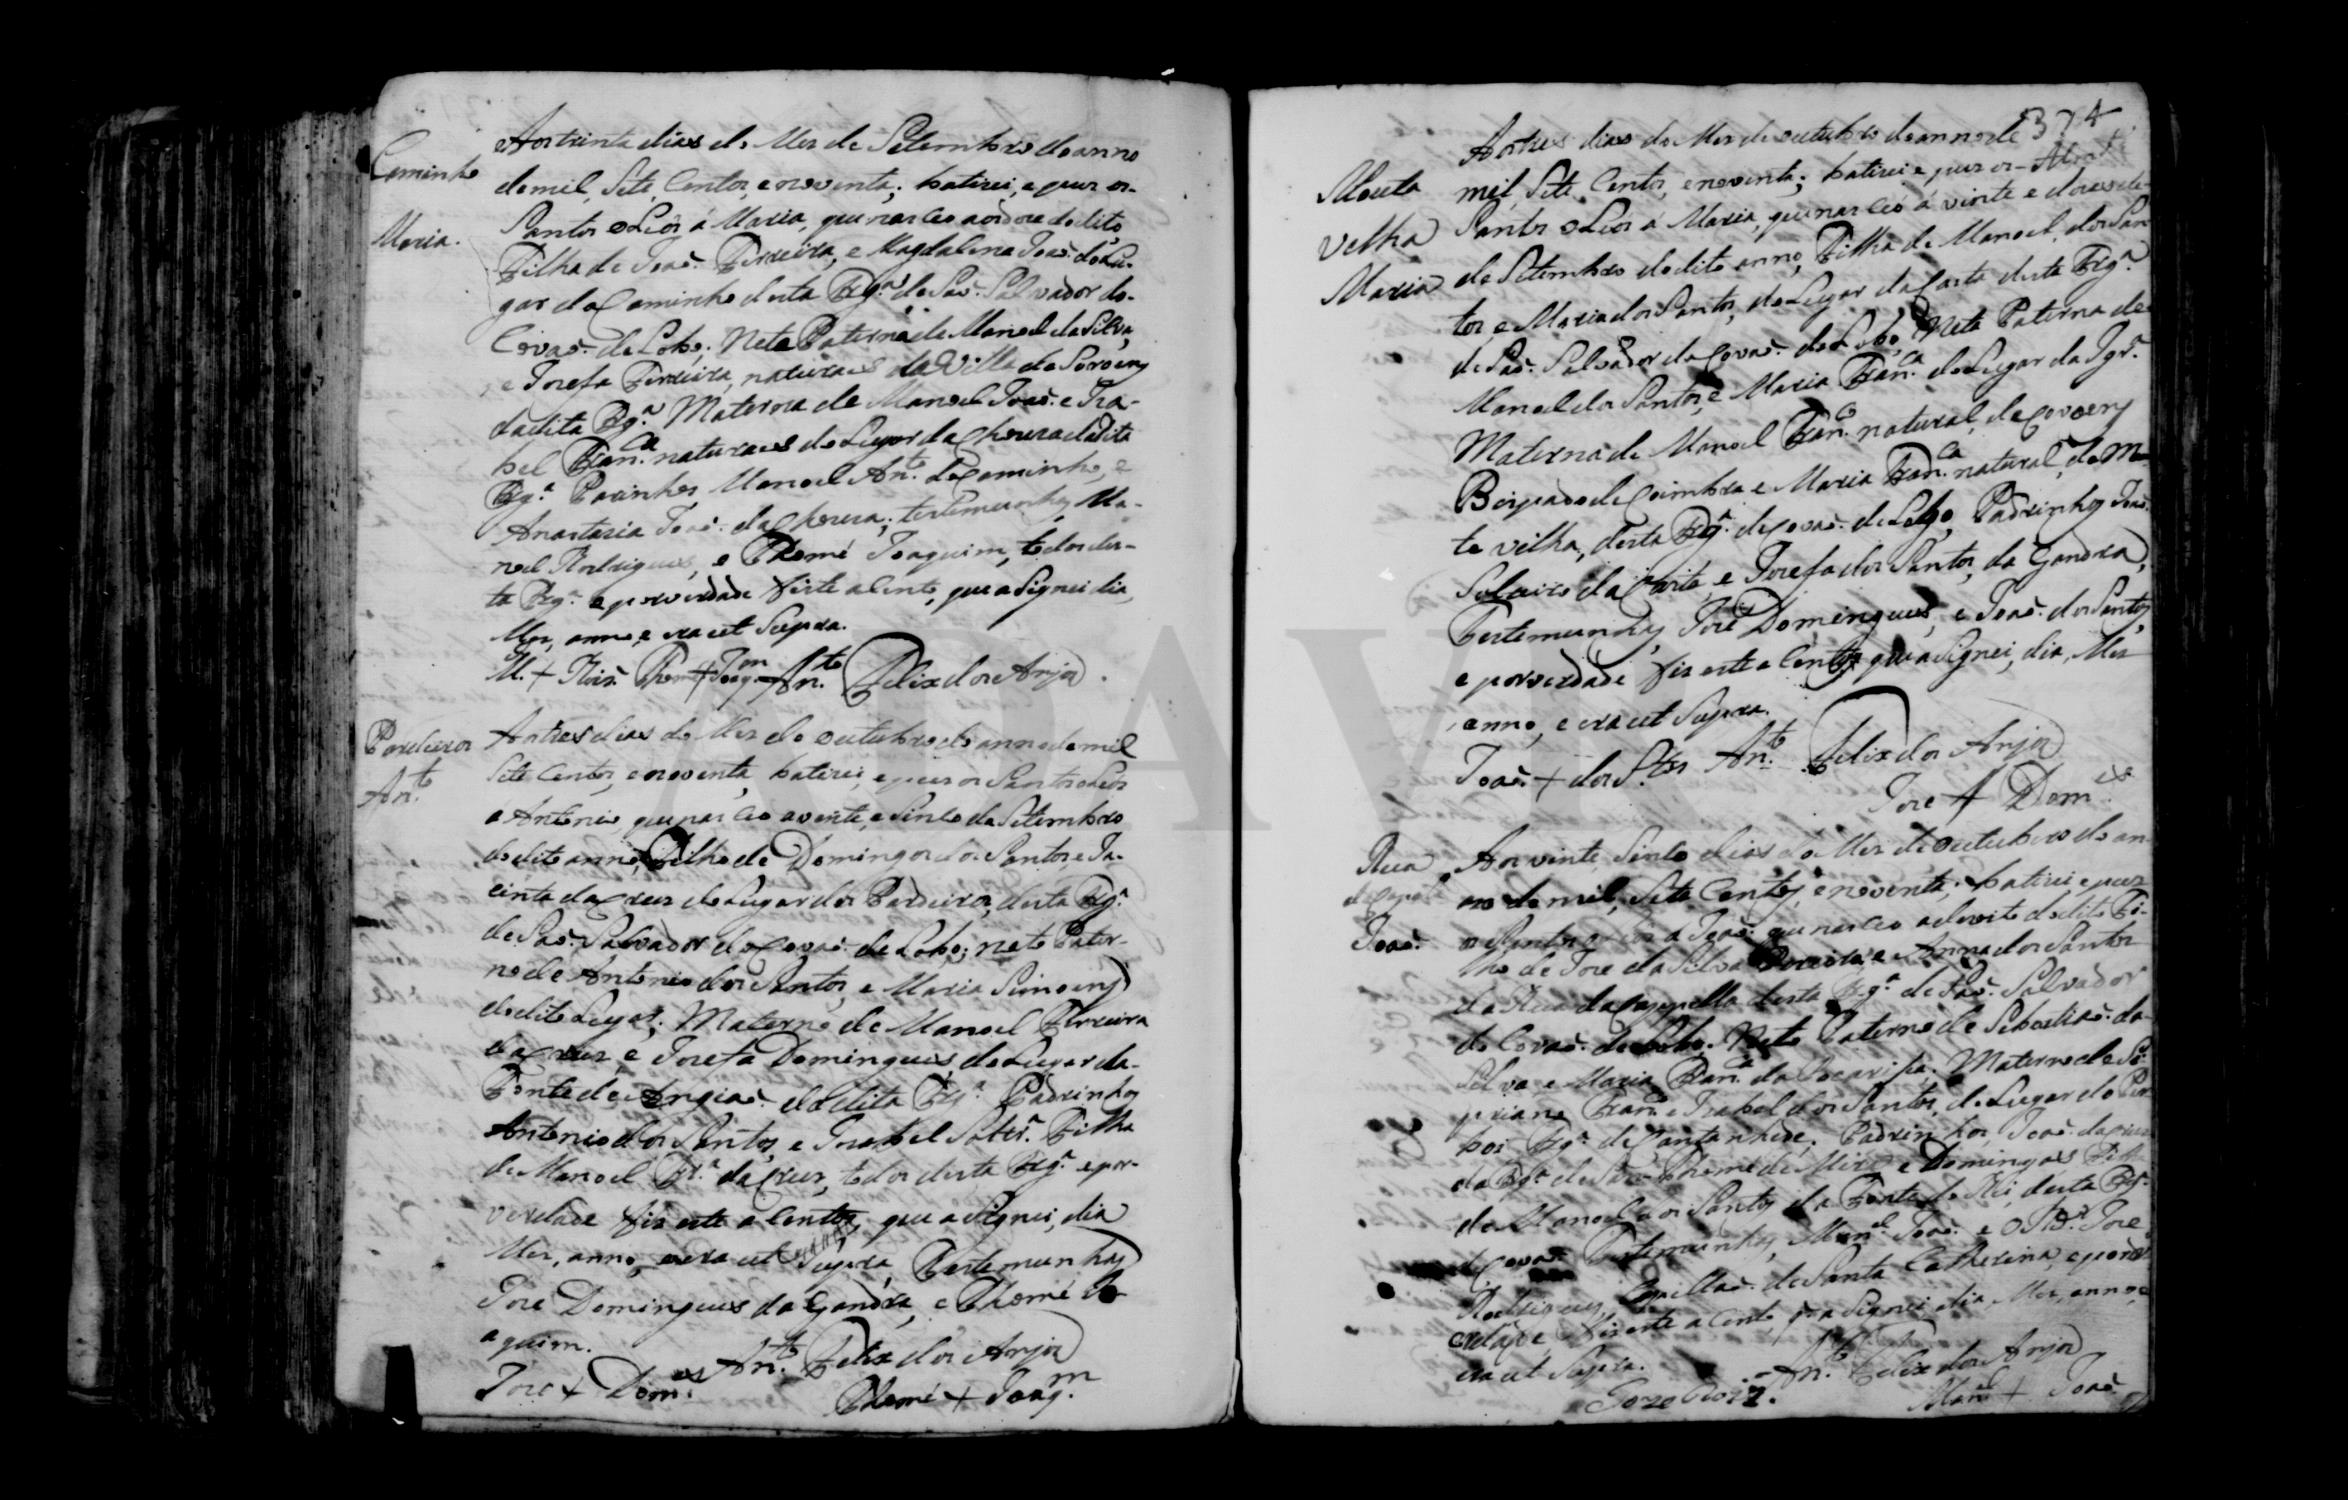 Caminho
Maria.
Aos trinta dias do Mes de Setembro do anno
de mil, Sete, Centos, e noventa; batizei, e puz os-
Santos oLeos á Maria, que nasceo aos doze do dito
Filha de Joaõ. Ferreira, e Magdalena Joaõ. do Lu-
gar do Caminho desta Frg.ª de Saõ. Salvador do-
Covaõ. do Lobo; Neta Paterna de Manoel da Silva,
e Josefa Ferreira, naturaes da Villa de Soroeny
da dita Frg.ª Materna de Manoel Joaõ. e Iza-
bel Fran.ca naturaes do Lugar da Chouza da dita
Frg.ª Parinhos Manoel An.to do Caminho, e
Anastasia Joaõ. da Chouza; testemunhas Ma-
noel Rodrigues, e Thomé Joaquim, todos des-
ta Frg.ª e por verdade fis este aCento, que aSignei dia,
Mes, anno, e era ut Supra.
M. + Roiz. Thome + Joaq.m An.to Felix dos Anjos.
Pardeiros
An.to
Aos tres dias do Mes de outubro do anno de mil
Sete Centos, e noventa, batizei, e puz os Santos oLeos
á Antonio, que nasceo a vente, e Sinco de Setembro
do dito anno, Filho de Domingos dos Santos, e Ja-
cinta da Cruz do Lugar dos Pardeiros, desta Frg.ª
de Saõ. Salvador do Covaõ. do Lobo; neto Pater-
no de Antonio dos Santos, e Maria Simoens
do dito Lugar; Materno de Manoel Ferreira
da Cruz, e Josefa Domingues, do Lugar da-
Fonte de Angiaõ. da dita Frg.ª Padrinhos
Antonio dos Santos, e Izabel Solt.rª Filha
de Manoel Fr.ª da Cruz, todos desta Frg.ª e por-
verdade fis este aCento, que aSignei, dia
Mes, anno, e era ut Supra, Testemunhas
Joze Domingues da Gandra, e Thomé Jo-
aquim.
An.to Felix dos Anjos
Joze + Dom.es Thomé + Joaq.m
374
Mouta
Velha
Maria
Aos tres dias do Mes de outubro do anno de
mil, Sete, Centos, e noventa; batizei e puz os-
Santos oLeos á Maria, que nasceo á vinte e dois de-
de Setembro do dito anno, Filha de Manoel, dos San
tos, e Maria dos Santos, do Lugar da Carta desta Frg.ª
de Saõ. Salvador do Covaõ. do Lobo, Neta Paterna de
Manoel dos Santos, e Maria Fran.ca do Lugar da Igr.ª
Materna de Manoel Fran.co natural, de Covoens
Beispado de Coimbra e Maria Fran.ca natural, da Mou-
ta velha, desta Frg.ª do Covaõ. do Lobo, Padrinhos Joaõ.
Solteiro da Carta, e Josefa dos Santos, da Gandra,
Testemunhas, Joze Domingues, e Joaõ. dos Santos,
e por verdade fis este aCento, que aSignei, dia, Mes
anno, e era ut Supra.
Joaõ. + dos Stos An.to Felix dos Anjos
Joze + Dom.es
Rua
da Capel.ª
Joaõ.
Aos vinte, Sinco dias do Mes de outubro do an
no de mil, Sete Centos, e noventa; batizei e puz
os Santos oLeos á Joaõ. que nasceo a dezoito do dito Fi-
lho de Joze da Silva, e Anna dos Santos
da Rua da Cappella desta Frg.ª de Saõ. Salvador
do Covaõ. do Lobo. Neto Paterno de Sebastiaõ. da-
Silva e Maria Fran.ca da Tocariha. Materno de Si-
priano Fran.co e Izabel dos Santos, do Lugar do
Frg.ª de Cantanhede; Padrinhos, Joaõ. da Cruz
da Frg.ª de Saõ Thome de Mira e Domingas Filha
de Manoel dos Santos da Fonte do Rei, desta Frg.ª
do Covaõ. Testemunhas, Man.el Joaõ. e o Joze
Rodrigues, Capellaõ. de Santa Catherina, e por v
erdade, fis este aCento, q aSignei, dia Mes, anno, e
era ut Supra. An.to Felix dos Anjos
Joze Roiz. Man.el + Joaõ.
ADAVR